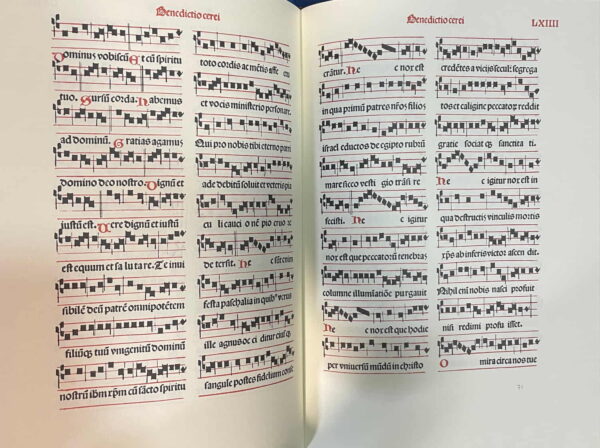 Benedictio cerei
Dominus vobiscū Et cū spiritu
tuo. Sursū corda. Habemus
ad dominū. Gratias agamus
domino deo nostro. Dignū et
iustū est. Vere dignū et iustū
est equum et salutare. Te inui
sibilē deū patrē omnipotētem
filiūq; tuū vnigenitū dominū
nostrū ihm xpm cū sācto spiritu
toto cordis ac mētis affe ctu
et vocis ministerio personare.
Qui pro nobis tibi eterno patri
ade debitū soluit et veteris pia
culi cauci onē pio cruo re
de tersit. He c sūt enim
festa paschalia in quibꝰ verus
ille agnus oc ci ditur eiusq;
sanguīe postes fidelium conse
Benedictio cerei
LXIIII
crātur. He c nox est
in qua primū patres nr̄os filios
israel eductos de egipto rubrū
mare sicco vesti gio trāsi re
fecisti. He c igitur
nox est que peccatorū tenebras
columne illumīatiōe purgauit
He c nox est que hodie
per vniuersū mūdū in christo
credētes a vicijs seculi: segrega
tos et caligine peccatoꝝ reddit
gratie sociat q; sanctita ti.
He c igitur nox est in
qua destructis vinculis mortis
xp̄s ab inferis victor ascen dit.
Nihil enī nobis nasci profuit
nisi redimi profu isset.
O mira circa nos tue